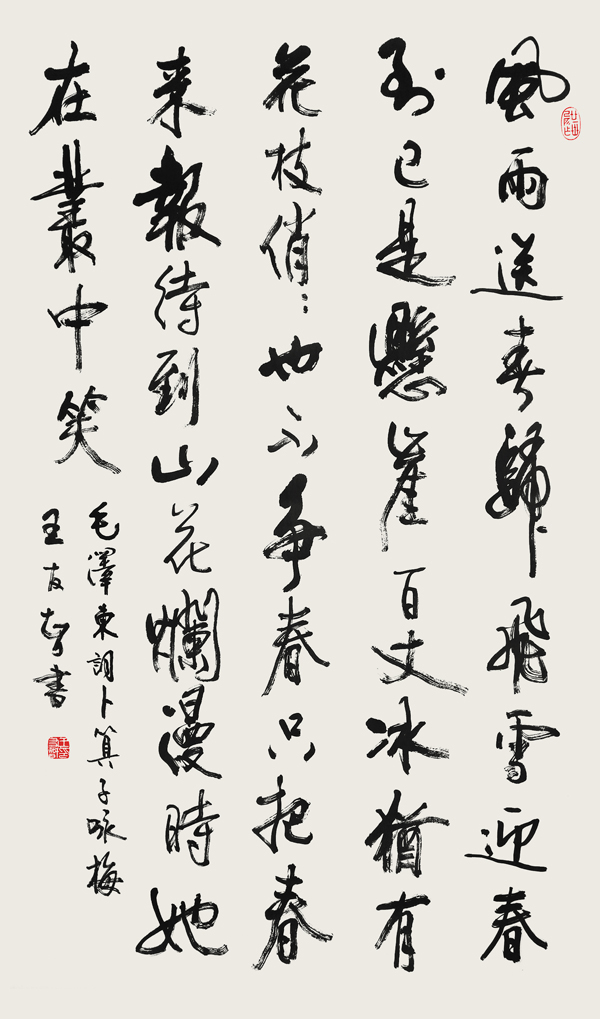 風雨送春歸飛雪迎春
到已是懸崖百丈冰猶有
花枝俏〻也不争春只把春
来報待到山花爛漫時她
在叢中笑
毛澤東詞卜算子咏梅
王友書